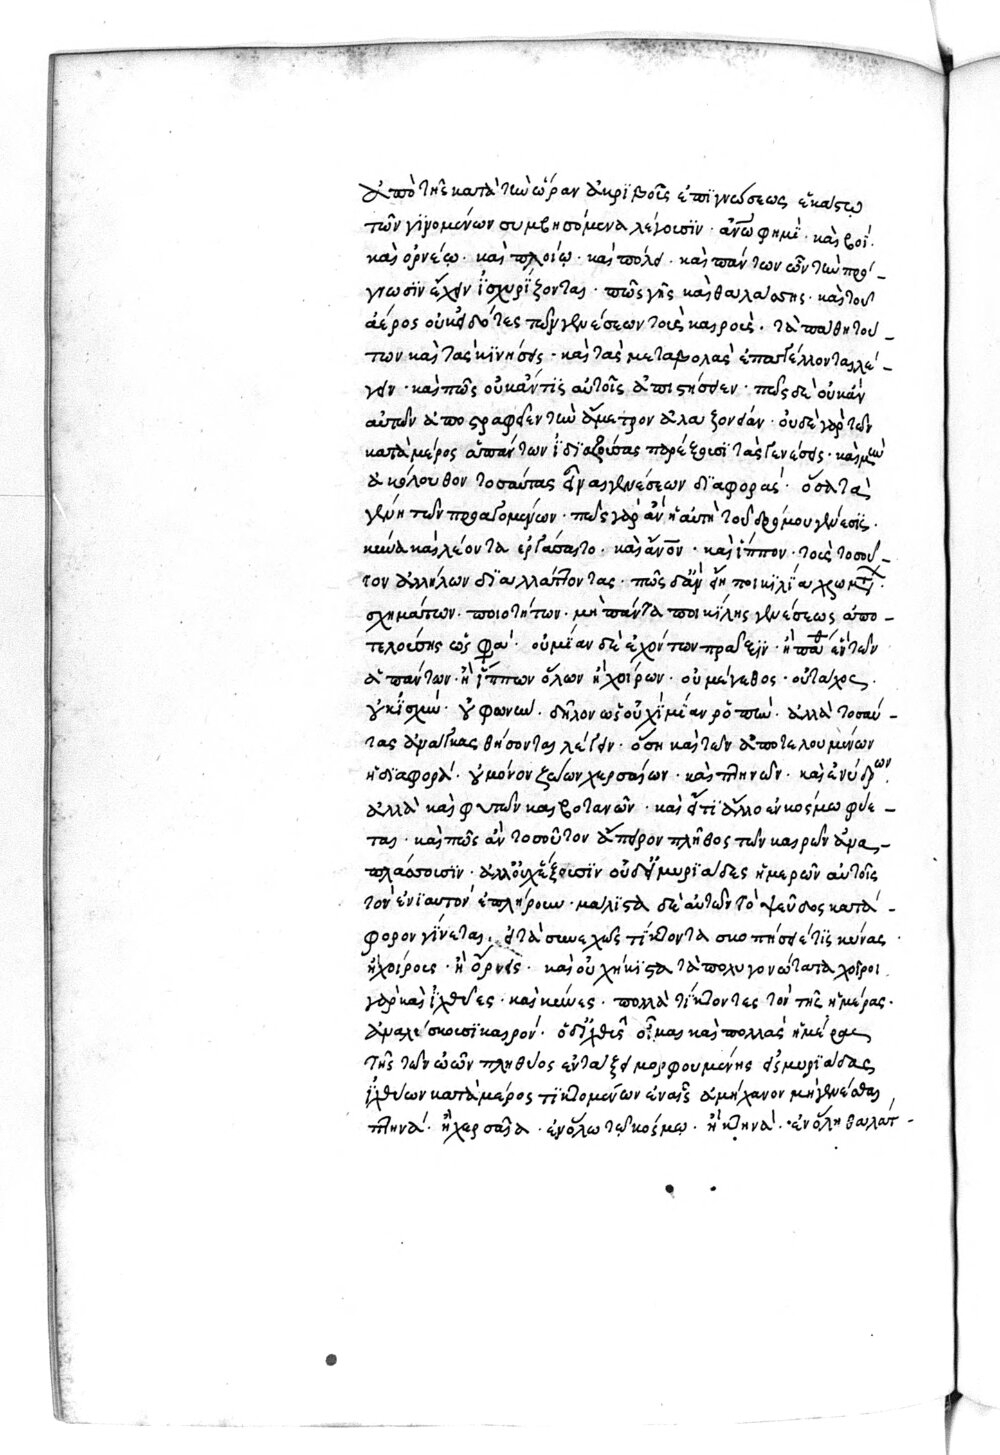 ἀπὸ τῆς κατὰ τὴν ὥραν ἀκριβοῦς ἐπιγνώσεως ἑκάστῳ
τῶν γινομένων συμβησόμενα λέγουσιν· ἀνθρώπῳ φημὶ· καὶ βοΐ·
καὶ ὀρνέῳ· καὶ πλοίῳ· καὶ πόλει· καὶ πάντων ὧν τὴν πρό-
γνωσιν ἔχειν ἰσχυρίζονται· πῶς γῆς καὶ θαλάσσης· καὶ τοῦ
ἀέρος οὐκ εἰδότες τῶν γενέσεων τοὺς καιροὺς· τὰ πάθη του-
των καὶ τὰς κινήσεις· καὶ τὰς μεταβολὰς ἐπαγγέλλονται λέ-
γειν· καὶ πῶς οὐκ ἄν τις αὐτοῖς ἀπιστήσειεν· πῶς δὲ οὐκ ἂν
αὐτῶν ἀποστραφείη τὴν ἄμετρον ἀλαζονείαν· οὐδὲ γὰρ τῶν
κατὰ μέρος ἁπάντων ἰδιαζούσας παρέξουσι τὰς γενέσεις· καὶ μὴν
ἀκόλουθον τοσαύτας εἶναι γενέσεων διαφορὰς· ὅσα τὰ
γένη τῶν πραγομένων· πῶς γὰρ ἂν ἡ αὐτὴ τοῦ δρόμου γένεσις·
κύνα καὶ λέοντα ἐργάσαιτο· καὶ ἄνθρωπον· καὶ ἵππον· τοὺς τοσοῦ-
τον ἀλλήλων διαλλάττοντας· πῶς δ' ἂν εἴη ποικιλία χρωμάτων·
σχημάτων· ποιοτήτων· μὴ πάντα ποικίλης γενέσεως ἀπο-
τελούσης ὥς φασι· οὐ μίαν δὲ ἐχόντων πρᾶξιν· ἢ πάθος ἓν τῶν
ἁπάντων· ἢ ἵππων ὅλων ἢ χοίρων· οὐ μέγεθος· οὐ τάχος·
οὐκ ἰσχὺν· οὐ φωνὴν· δῆλον ὡς οὐχὶ μίαν ῥοπὴν· ἀλλὰ τοσαύ-
τας ἀναγκασθήσονται λέγειν· ὅση καὶ τῶν ἀποτελουμένων
ἡ διαφορά· οὐ μόνον ζώων χερσαίων· καὶ πτηνῶν· καὶ ἐνύδρων·
ἀλλὰ καὶ φυτῶν καὶ βοτανῶν· καὶ εἴ τι ἄλλο ἐν κόσμῳ φύε-
ται· καὶ πῶς ἂν τοσοῦτον ἄπειρον πλῆθος τῶν καιρῶν ἀνα-
πλάσσουσιν· ἀλλ' οὐχ ἕξουσιν οὐδ' εἰ μυριάδες ἡμερῶν αὐτοῖς
τὸν ἐνιαυτὸν ἐπλήρουν· μάλιστα δὲ αὐτῶν τὸ ψεῦδος κατά-
φορον γίνεται· εἰ τὰ συνεχῶς τίκτοντα σκοπήσειέ τις κύνας·
ἢ χοίρους· ἢ ὄρνεις· καὶ οὐχ ἥκιστα τὰ πολυγονώτατα χοῖροι
γὰρ καὶ ἰχθύες· καὶ κύνες· πολλὰ τίκτοντες τὸν τῆς ἡμέρας·
ἀναλίσκουσι καιρόν· ὁ δ' ἰχθῦς οἶμαι καὶ πολλὰς ἡμέρας
τῆς τῶν ὠῶν πλήθυος ἐν τάξει μορφουμένης εἰς μυριάδας
ἰχθύων κατὰ μέρος τικτομένων ἐν αἷς ἀμήχανον μὴ γενέσθαι
πτηνὰ· ἢ χερσαῖα· ἐν ὅλῳ τῷ κόσμῳ· ἢ κτηνὰ· ἐν ὅλῃ θαλάτ-